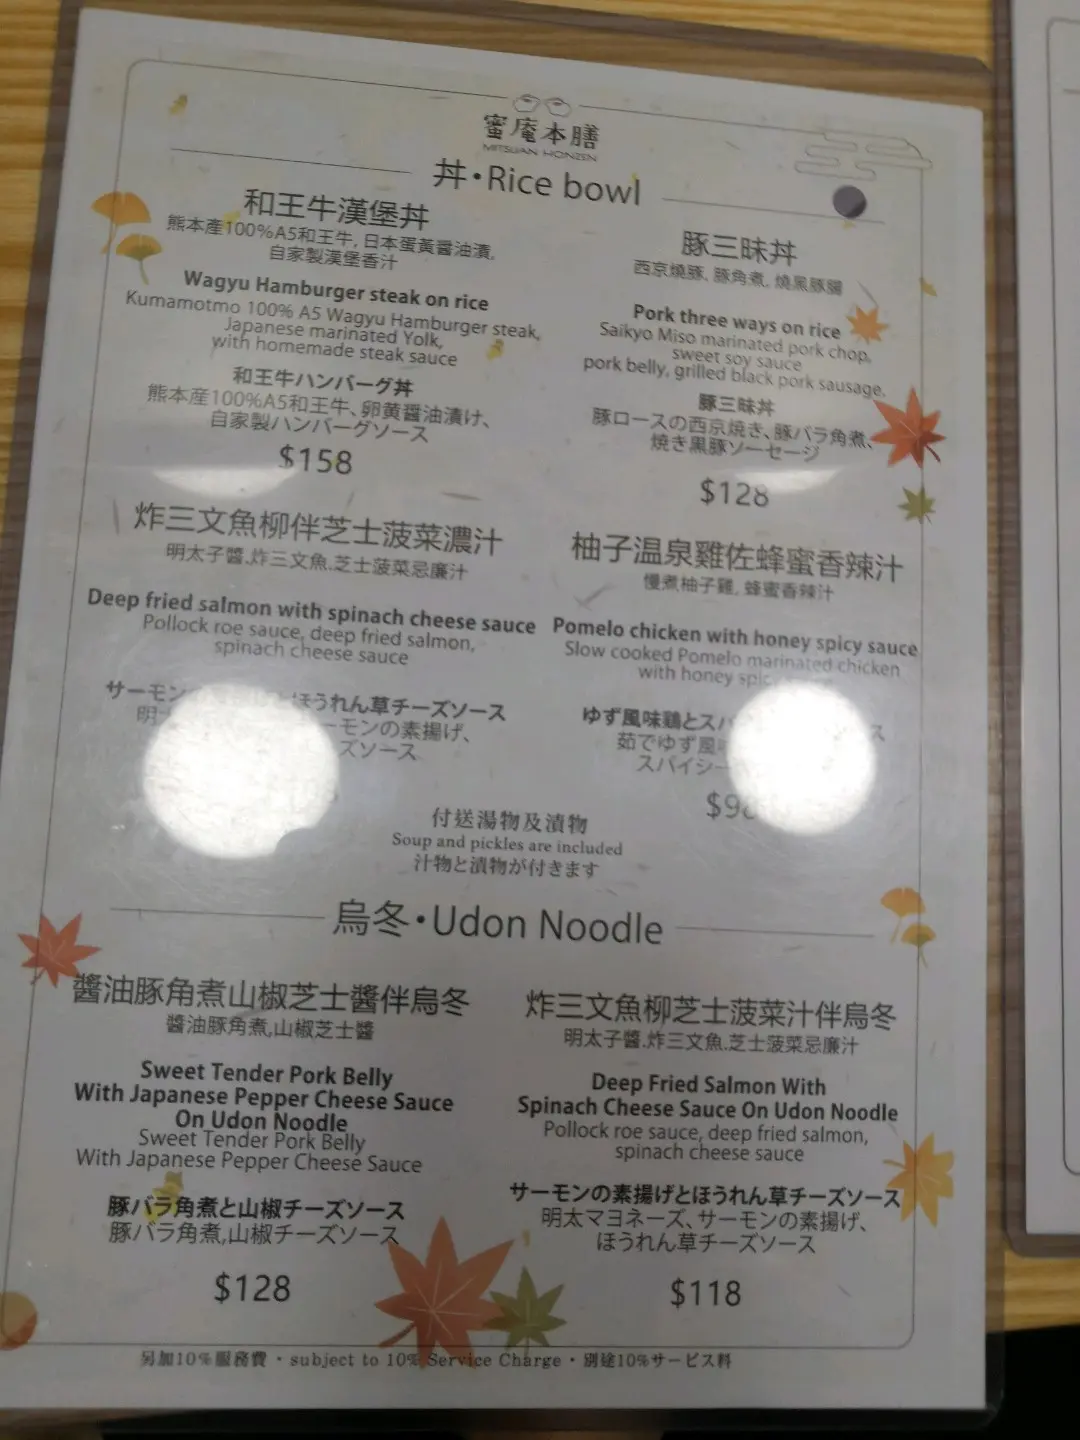 蜜庵本膳
MITSUAN HONZEN
丼・Rice bowl
和王牛漢堡丼
熊本產100%A5和王牛, 日本蛋黃醬油漬,
自家製漢堡香汁
Wagyu Hamburger steak on rice
Kumamotmo 100% A5 Wagyu Hamburger steak,
Japanese marinated Yolk,
with homemade steak sauce
和王牛ハンバーグ丼
熊本産100%A5和王牛、卵黄醤油漬け、
自家製ハンバーグソース
$158
豚三昧丼
西京燒豚, 豚角煮, 燒黑豚腸
Pork three ways on rice
Saikyo Miso marinated pork chop,
sweet soy sauce
pork belly, grilled black pork sausage,
豚三昧丼
豚ロースの西京焼き、豚バラ角煮、
焼き黒豚ソーセージ
$128
炸三文魚柳伴芝士菠菜濃汁
明太子醬.炸三文魚.芝士菠菜忌廉汁
Deep fried salmon with spinach cheese sauce
Pollock roe sauce, deep fried salmon,
spinach cheese sauce
サーモン ほうれん草チーズソース
明 ーモンの素揚げ、
ズソース
柚子温泉雞佐蜂蜜香辣汁
慢煮柚子雞, 蜂蜜香辣汁
Pomelo chicken with honey spicy sauce
Slow cooked Pomelo marinated chicken
with honey
ゆず風味鶏とス ス
茹でゆず風
スパイシー
付送湯物及漬物
Soup and pickles are included
汁物と漬物が付きます
烏冬・Udon Noodle
醬油豚角煮山椒芝士醬伴烏冬
醬油豚角煮,山椒芝士醬
Sweet Tender Pork Belly
With Japanese Pepper Cheese Sauce
On Udon Noodle
Sweet Tender Pork Belly
With Japanese Pepper Cheese Sauce
豚バラ角煮と山椒チーズソース
豚バラ角煮,山椒チーズソース
$128
炸三文魚柳芝士菠菜汁伴烏冬
明太子醬.炸三文魚.芝士菠菜忌廉汁
Deep Fried Salmon With
Spinach Cheese Sauce On Udon Noodle
Pollock roe sauce, deep fried salmon,
spinach cheese sauce
サーモンの素揚げとほうれん草チーズソース
明太マヨネーズ、サーモンの素揚げ、
ほうれん草チーズソース
$118
另加10%服務費・subject to 10% Service Charge・別途10%サービス料